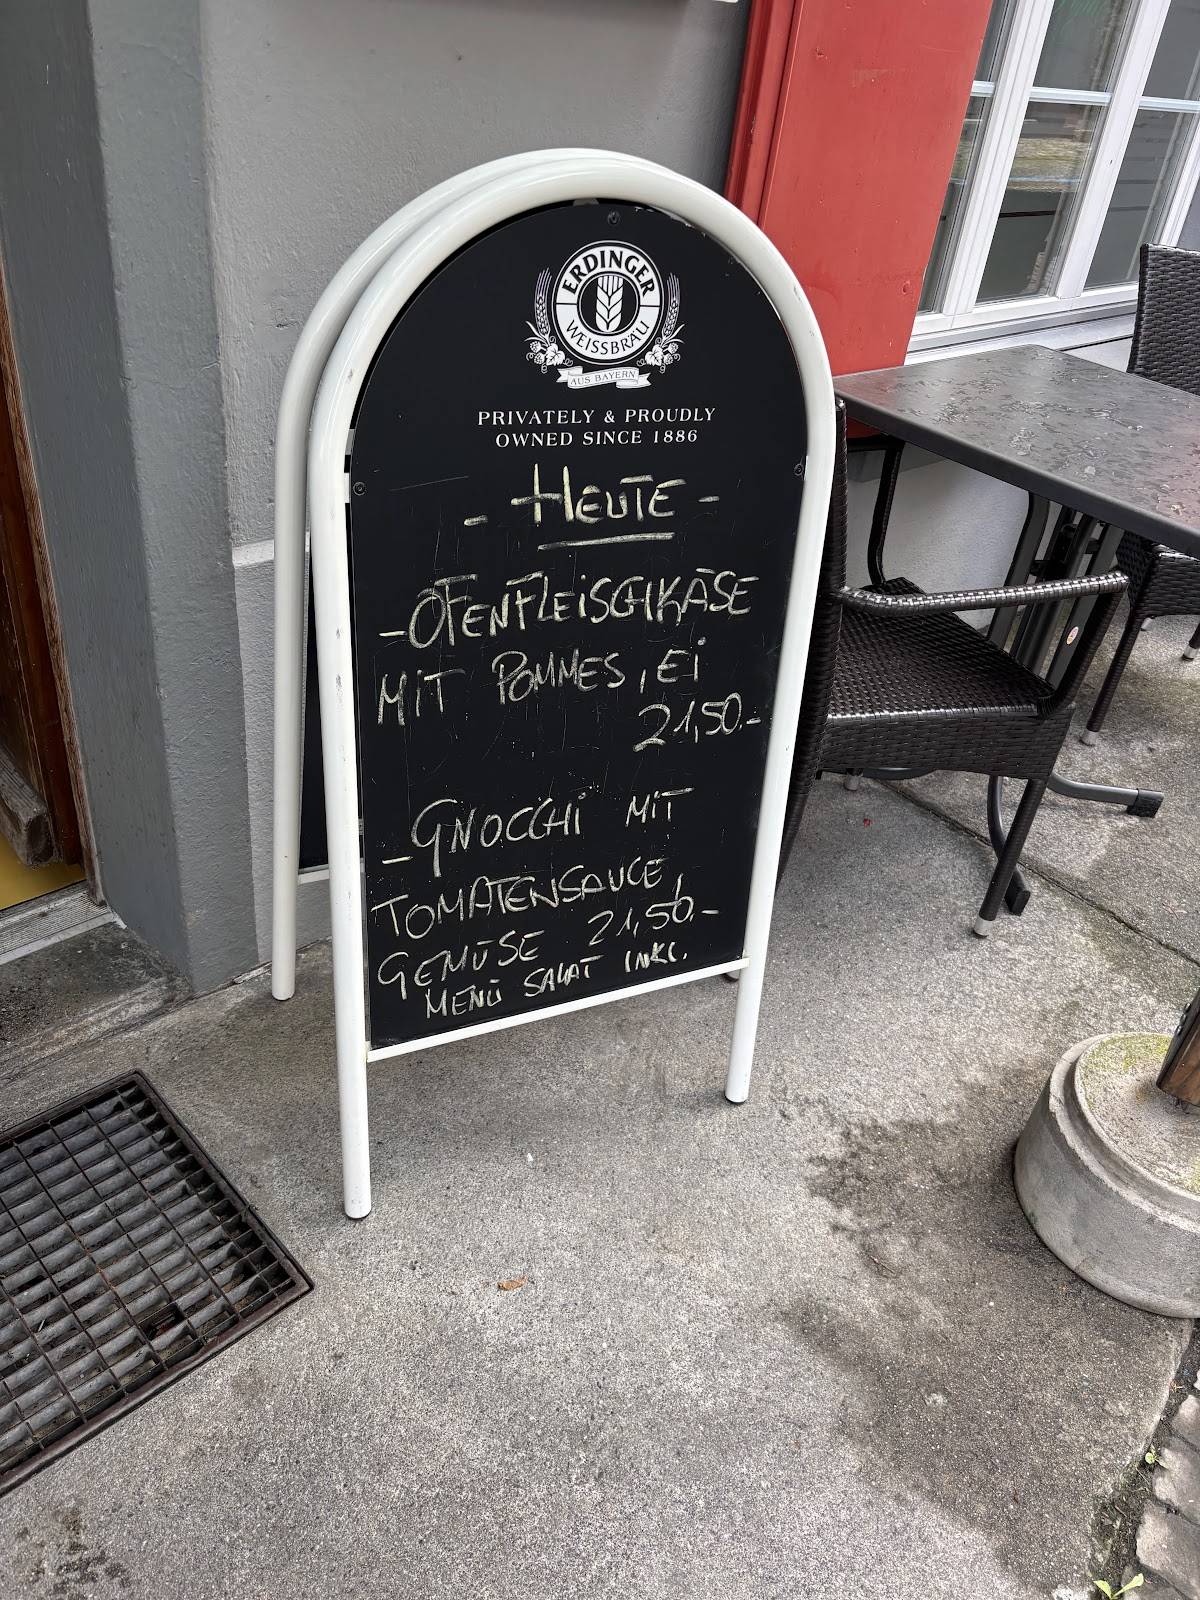 ERDINGER
WEISSBRÄU
AUS BAYERN
PRIVATELY & PROUDLY
OWNED SINCE 1886
- HEUTE -
- OFENFLEISCHKÄSE
MIT POMMES, EI
21,50.-
- GNOCCHI MIT
TOMATENSAUCE,
GEMÜSE 21,50.-
MENÜ SALAT INKL.